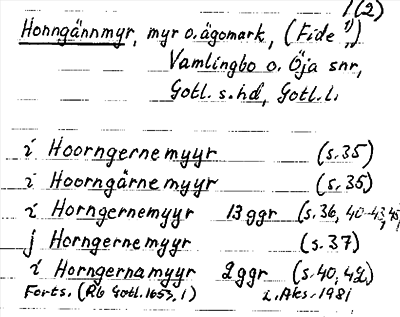 1(2)
Honngännmyr, myr o. ägomark, (Fide ")
Vamlingbo o. Öja snr,
Gotl. s. hd, Gotl. l.
i Hoorngernemyyr (s.35)
i Hoorngärnemyyr (s.35)
i Horngernemyyr 13 ggr (s.36, 40-43, 45)
j Horngernemyyr (s.37)
i Horngernamyyr 2 ggr (s.40, 42)
Forts. (Rb Gotl. 1653, 1) i. Aks. 1981